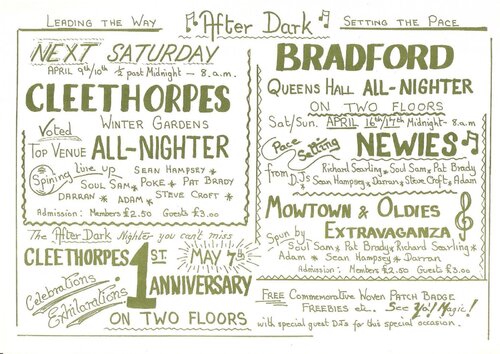 Leading the Way After Dark Setting the Pace
NEXT SATURDAY
APRIL 9th/10th ½ past Midnight - 8.a.m.
CLEETHORPES
Voted Winter Gardens
Top Venue ALL-NIGHTER
Spinning line up Sean Hampsey *
Soul Sam * Poke * Pat Brady
Darran * Adam * Steve Croft *
Admission: Members £2.50 Guests £3.00
The After Dark Nighter you can't miss
CLEETHORPES 1ST. MAY 7th
ANNIVERSARY
Celebrations
Exhilarations
ON TWO FLOORS
BRADFORD
Queens Hall ALL-NIGHTER
ON TWO FLOORS
Sat/Sun. APRIL 16th/17th Midnight - 8.a.m
Pace Setting NEWIES
from D.Js Richard Searling * Soul Sam * Pat Brady
* Sean Hampsey * Darran * Steve Croft * Adam
Mowtown & Oldies
Extravaganza
Spun by
Soul Sam * Pat Brady * Richard Searling *
Adam * Sean Hampsey * Darran
Admission: Members £2.50 Guests £3.00
FREE Commemorative Woven Patch Badge
Freebies etc. See Yo! Magic!
with special guest DJs for this special occasion.